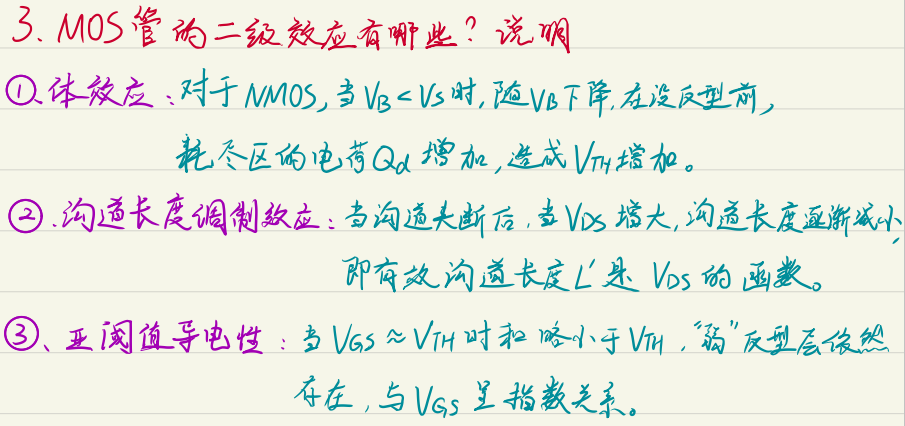 3. MOS管的二级效应有哪些?说明
①、体效应:对于NMOS,当VB<VS时,随VB下降,在没反型前,
耗尽区的电荷Qd增加,造成VTH增加。
②.沟道长度调制效应:当沟道夹断后,当VDS增大,沟道长度逐渐减小,
即有效沟道长度L'是VDS的函数。
③、亚阈值导电性:当VGS≈VTH时和略小于VTH,“弱”反型层依然
存在,与VGS呈指数关系。